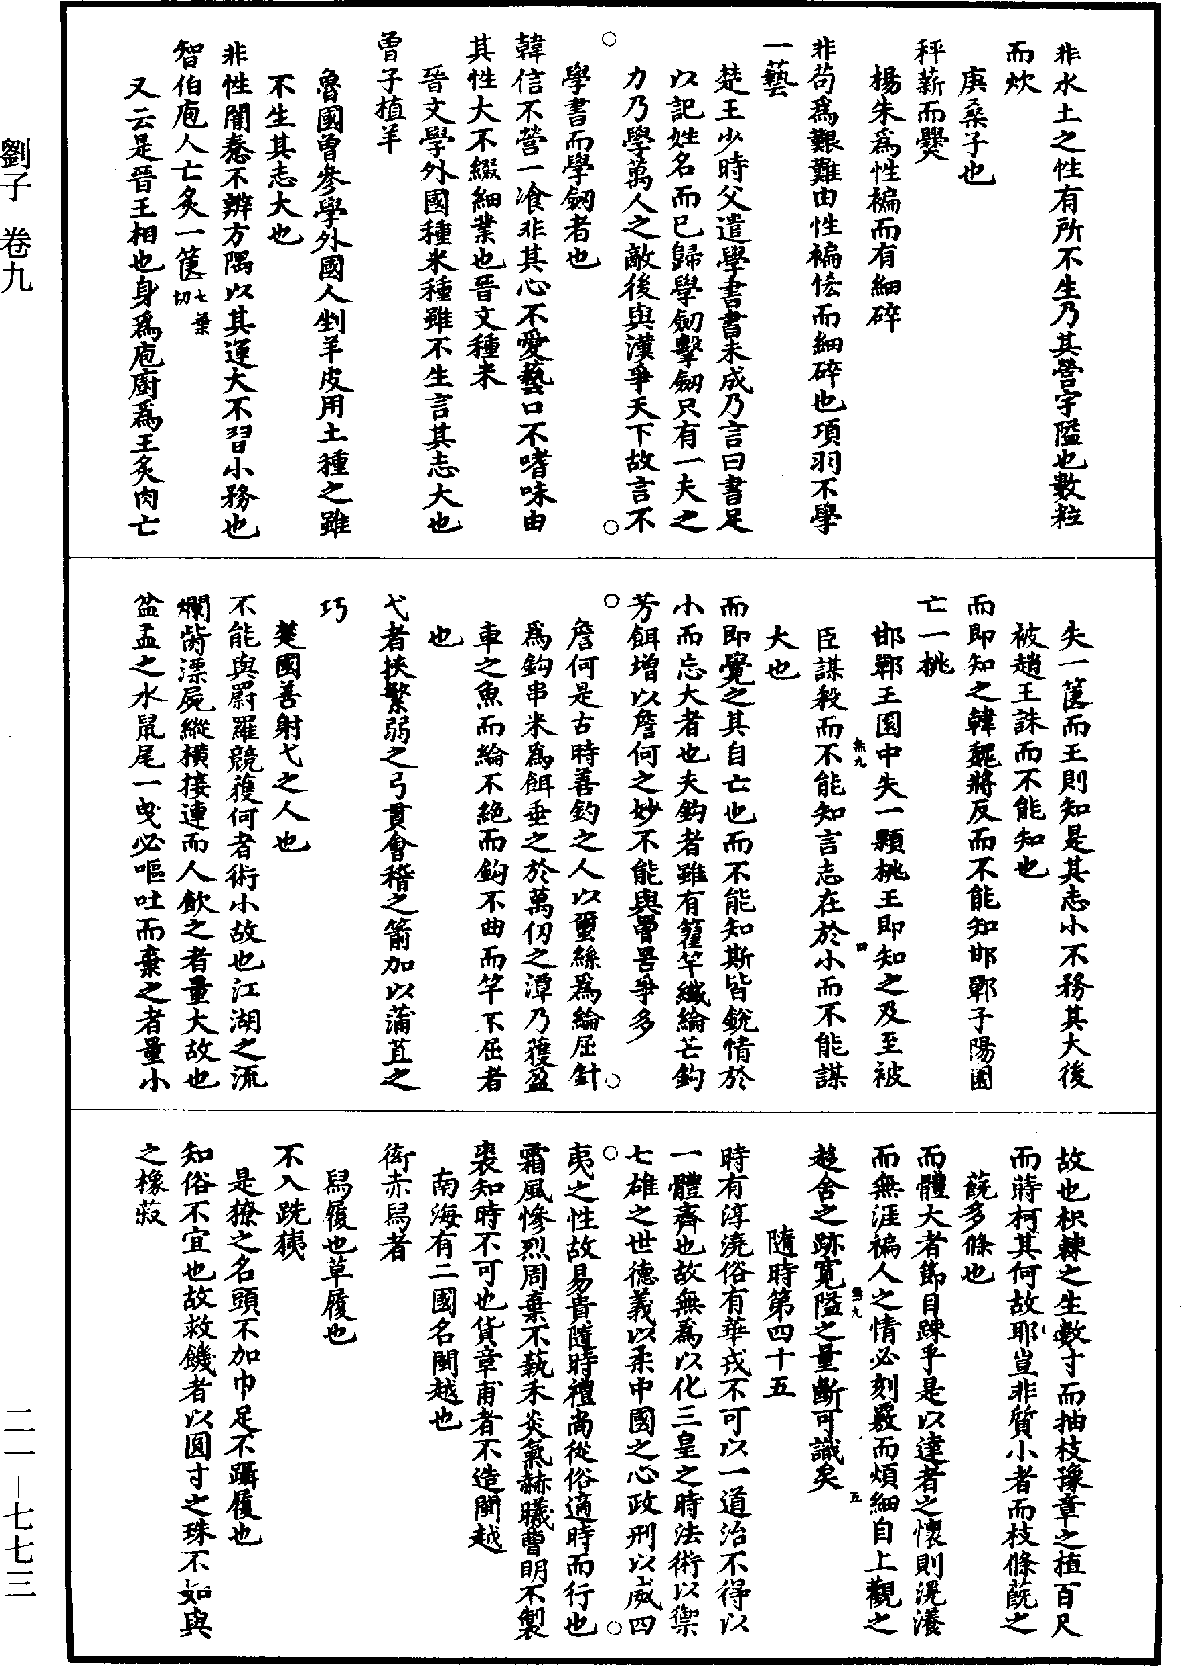 非水土之性有所不生乃其營宇隘也數粒
而炊
庚桑子也
秤薪而爨
楊朱爲性褊而有細碎
非苟爲艱難由性褊恡而細碎也項羽不學
一藝
楚王少時父遣學書書未成乃言曰書足
以記姓名而已歸學劒擊劒只有一夫之
力乃學萬人之敵後與漢爭天下故言不
學書而學劒者也
韓信不營一飡非其心不愛藝口不嗜味由
其性大不綴細業也晉文種米
晉文學外國種米種雖不生言其志大也
曾子植羊
魯國曾參學外國人剉羊皮用土種之雖
不生其志大也
非性闇憃不辨方隅以其運大不習小務也
智伯庖人亡炙一篋七葉切
又云是晉王相也身爲庖廚爲王炙肉亡
失一篋而王則知是其志小不務其大後
被趙王誅而不能知也
而即知之韓魏將反而不能知邯鄲子陽園
亡一桃
邯鄲王園中失一顆桃王即知之及至被
臣謀殺而不能知言志在於小而不能謀
大也
而即覺之其自亡也而不能知斯皆銳情於
小而忘大者也夫鈎者雖有籊竿纖綸芒鈎
芳餌增以詹何之妙不能與罾罟爭多
詹何是古時善釣之人以蠒絲爲綸屈針
爲鈎串米爲餌垂之於萬仞之潭乃獲盈
車之魚而綸不絶而鈎不曲而竿不屈者
也
弋者挾繁弱之弓貫會稽之箭加以蒲苴之
巧
楚國善射弋之人也
不能與罻羅競獲何者術小故也江湖之流
爛胔漂屍縱橫接連而人飲之者量大故也
盆盂之水鼠尾一曳必嘔吐而棄之者量小
故也枳棘之生數寸而抽枝豫章之植百尺
而蒔柯其何故耶豈非質小者而枝條蓻之
蓻多條也
而體大者節目踈乎是以達者之懷則滉瀁
而無涯褊人之情必刻覈而煩細自上觀之
趍舍之跡寬隘之量斷可識矣
隨時第四十五
時有淳澆俗有華戎不可以一道治不得以
一體齊也故無爲以化三皇之時法術以禦
七雄之世德義以柔中國之心政刑以威四
夷之性故易貴隨時禮尚從俗適時而行也
霜風慘烈周棄不藝禾炎氣赫曦曹明不製
裘知時不可也貨章甫者不造閩越
南海有二國名閩越也
衒赤舄者
舄履也草履也
不入跣䠶
是獠之名頭不加巾足不躡履也
知俗不宜也故救饑者以圓寸之珠不如與
之橡菽
劉子　卷九
二一—七七三